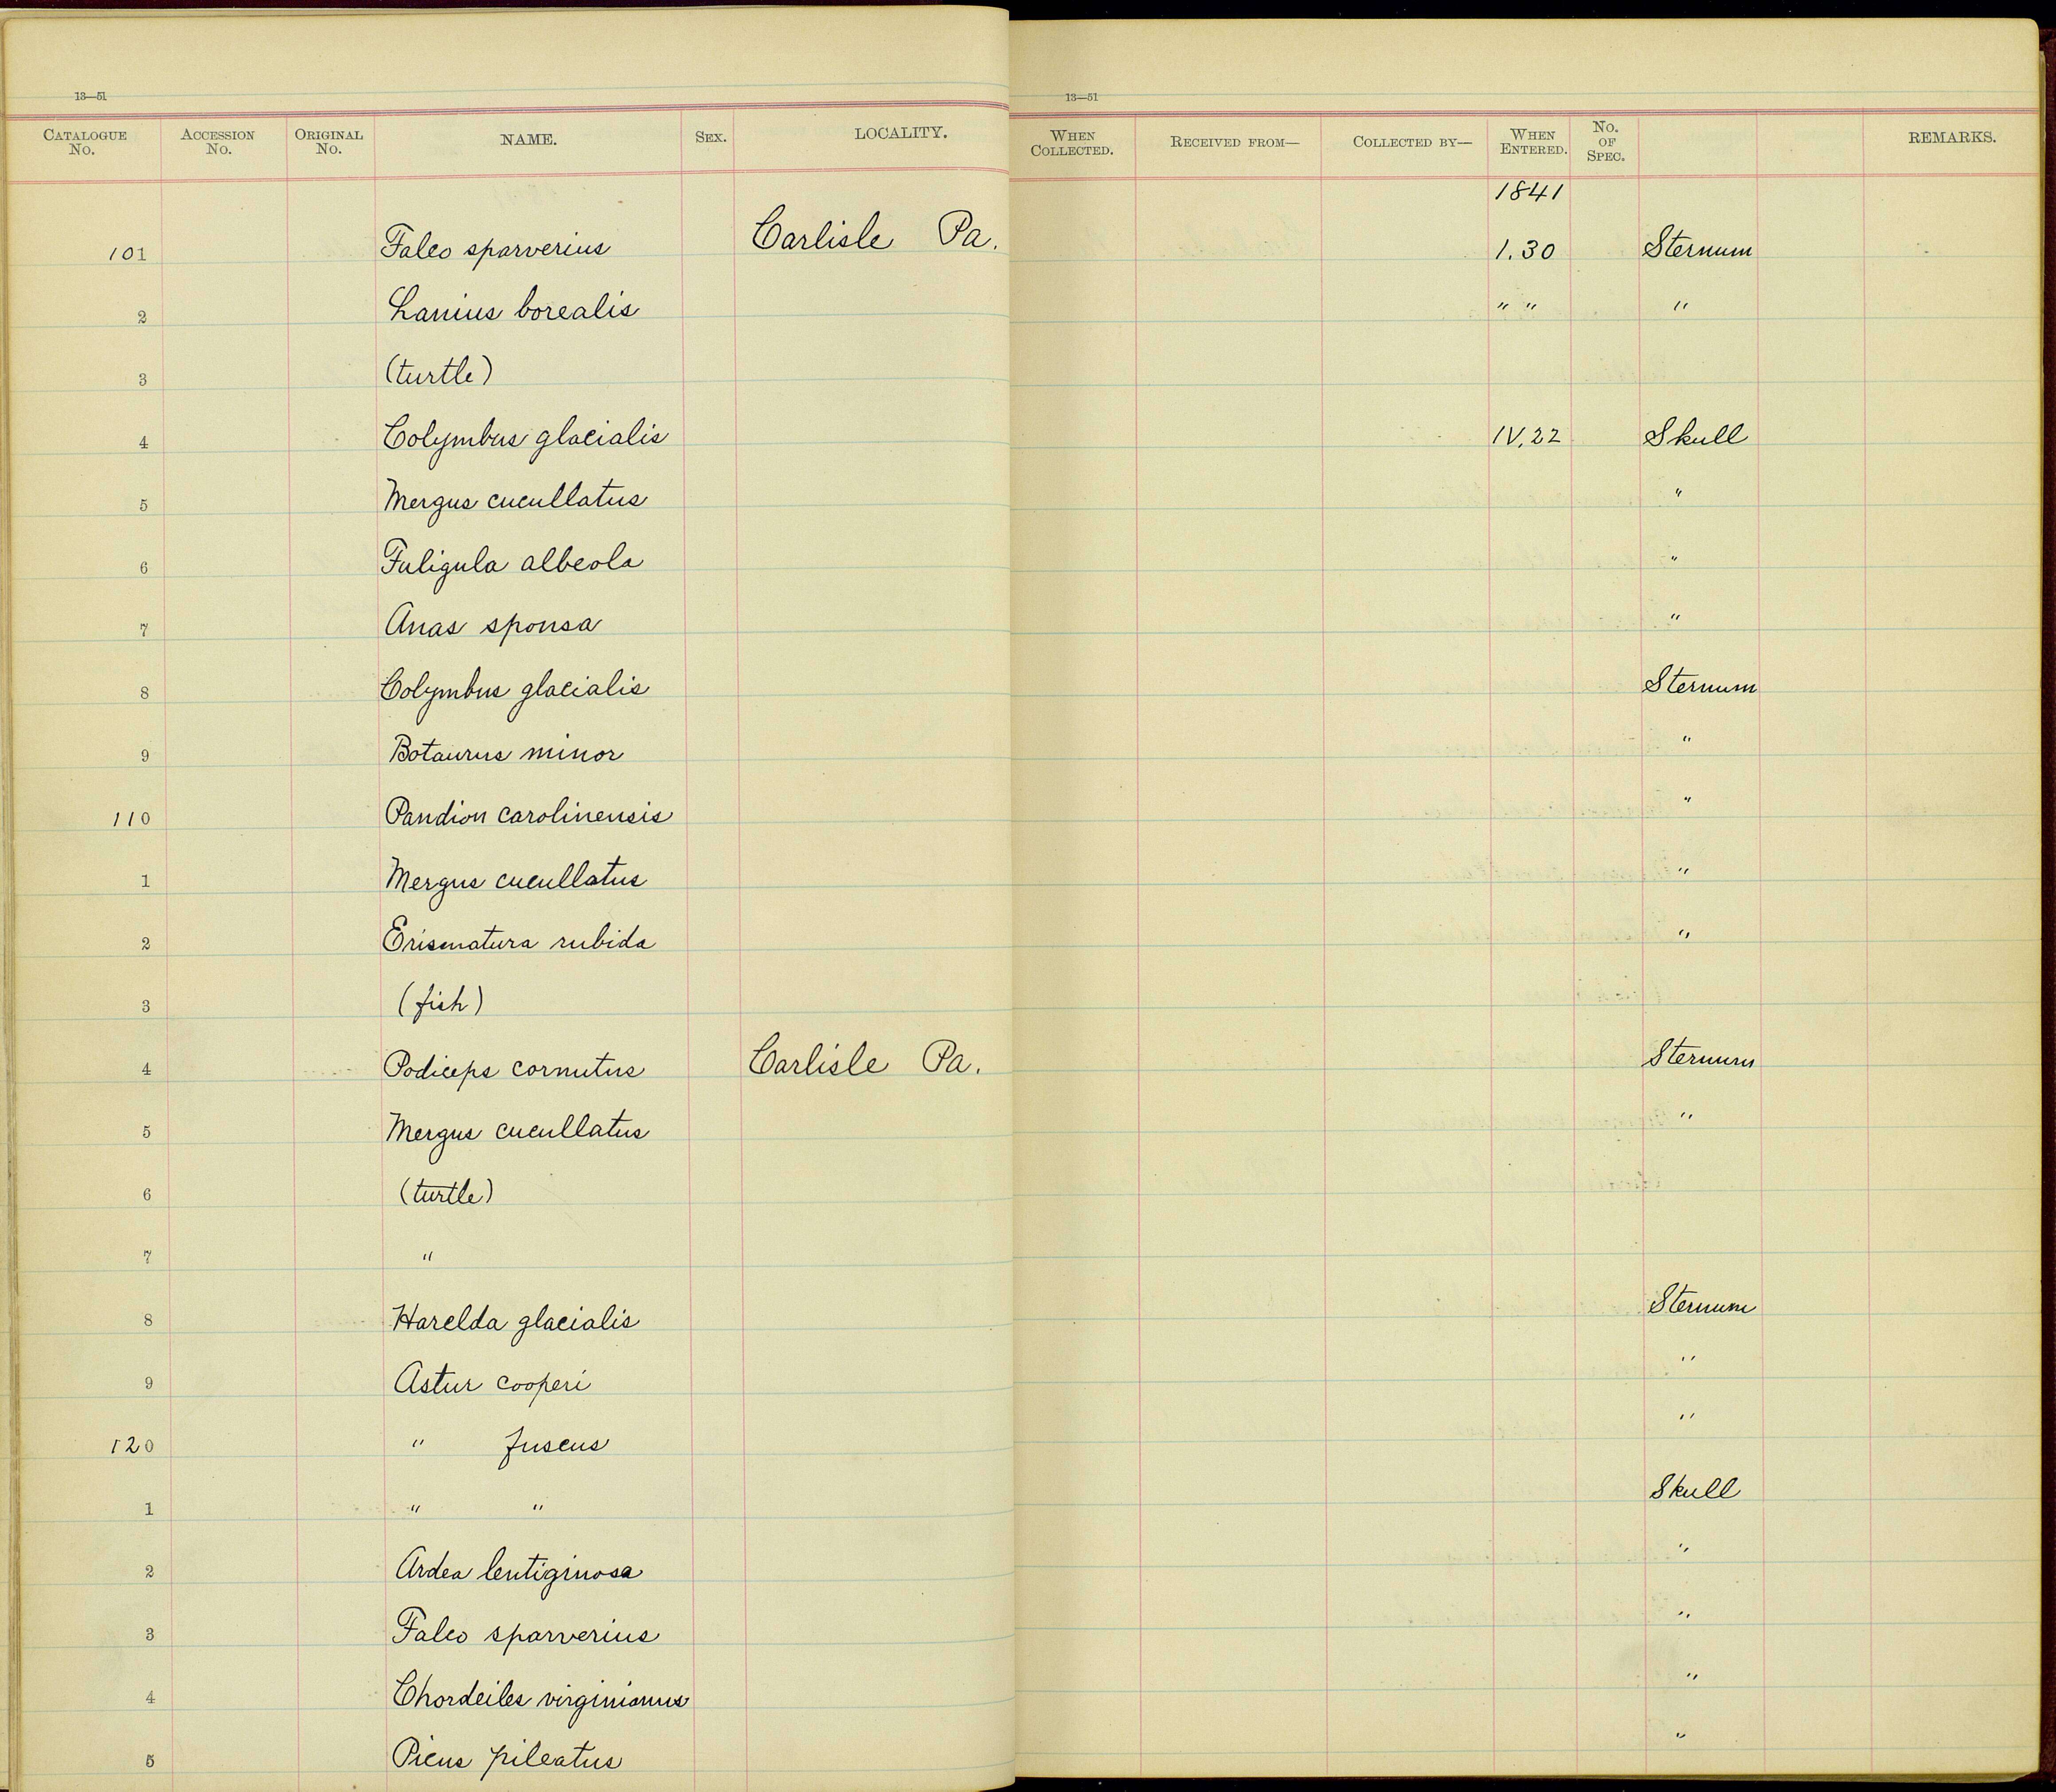 13—51 13—51
CATALOGUE No. ACCESSION No. ORIGINAL No. NAME. SEX. LOCALITY. WHEN COLLECTED. RECEIVED FROM— COLLECTED BY— WHEN ENTERED. No. OF SPEC. REMARKS.
1841
101 Falco sparverius Carlisle Pa. 1.30 Sternum
2 Lanius borealis " " "
3 (turtle)
4 Colymbus glacialis IV,22 Skull
5 Mergus cucullatus "
6 Fuligula albeola "
7 Anas sponsa "
8 Colymbus glacialis Sternum
9 Botaurus minor "
110 Pandion carolinensis "
1 Mergus cucullatus "
2 Erismatura rubida "
3 (fish)
4 Podiceps cornutus Carlisle Pa. Sternum
5 Mergus cucullatus "
6 (turtle)
7 "
8 Harelda glacialis Sternum
9 Astur cooperi "
120 " fuscus "
1 " " Skull
2 Ardea lentiginosa "
3 Falco sparverius "
4 Chordeiles virginianus "
5 Picus pileatus "